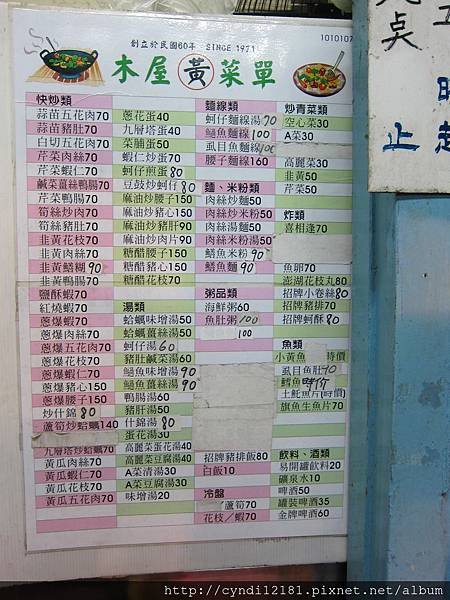 創立於民國60年 SINCE 1971
1010107
木屋黃菜單
快炒類
蒜苗五花肉70
蒜苗豬肚70
白切五花肉70
芹菜肉絲70
芹菜蝦仁70
鹹菜薑絲鴨腸70
芹菜鴨腸70
筍絲炒肉70
筍絲豬肚70
韭黃花枝70
韭黃肉絲70
韭黃鱔糊90
鹽酥蝦70
紅燒蝦70
蔥爆蝦70
蔥爆肉絲70
蔥爆五花肉70
蔥爆花枝70
蔥爆蝦仁70
蔥爆豬心150
蔥爆腰子150
炒什錦80
蘆筍炒蛤蠣140
九層塔炒蛤蠣70
黃瓜肉絲70
黃瓜蝦仁70
黃瓜花枝70
黃瓜五花肉70
蔥花蛋40
九層塔蛋40
菜脯蛋50
蝦仁炒蛋70
蚵仔煎蛋80
豆鼓炒蚵仔80
麻油炒腰子150
麻油炒豬心150
麻油炒豬肝90
麻油炒肉片90
糖醋腰子150
糖醋豬心150
糖醋花枝70
湯類
蛤蠣味增湯50
蛤蠣薑絲湯50
蚵仔湯60
豬肚鹹菜湯50
䱾魚味增湯90
䱾魚薑絲湯90
鴨腸湯60
豬肝湯50
什錦湯80
蛋花湯30
高麗菜蛋花湯40
高麗菜豆腐湯40
A菜清湯30
A菜豆腐湯30
味增湯20
麵線類
蚵仔麵線湯70
䱾魚麵線100
虱目魚麵線100
腰子麵線160
麵、米粉類
肉絲炒麵50
肉絲炒米粉50
肉絲湯麵50
肉絲米粉湯50
鱔魚米粉90
鱔魚麵90
粥品類
海鮮粥60
魚肚粥100
100
招牌豬排飯80
白飯10
冷盤
蘆筍70
花枝／蝦70
炒青菜類
空心菜30
A菜30
高麗菜30
韭黃50
芹菜50
炸類
喜相逢70
魚卵70
澎湖花枝丸80
招牌小卷絲80
招牌豬排70
招牌蚵酥80
魚類
小黃魚 特價
虱目魚肚90
鱈魚時價
土魠魚片(時價)
旗魚生魚片70
飲料、酒類
易開罐飲料20
礦泉水10
啤酒50
罐裝啤酒35
金牌啤酒60
止
http://cyndi12181.pixnet.net/album